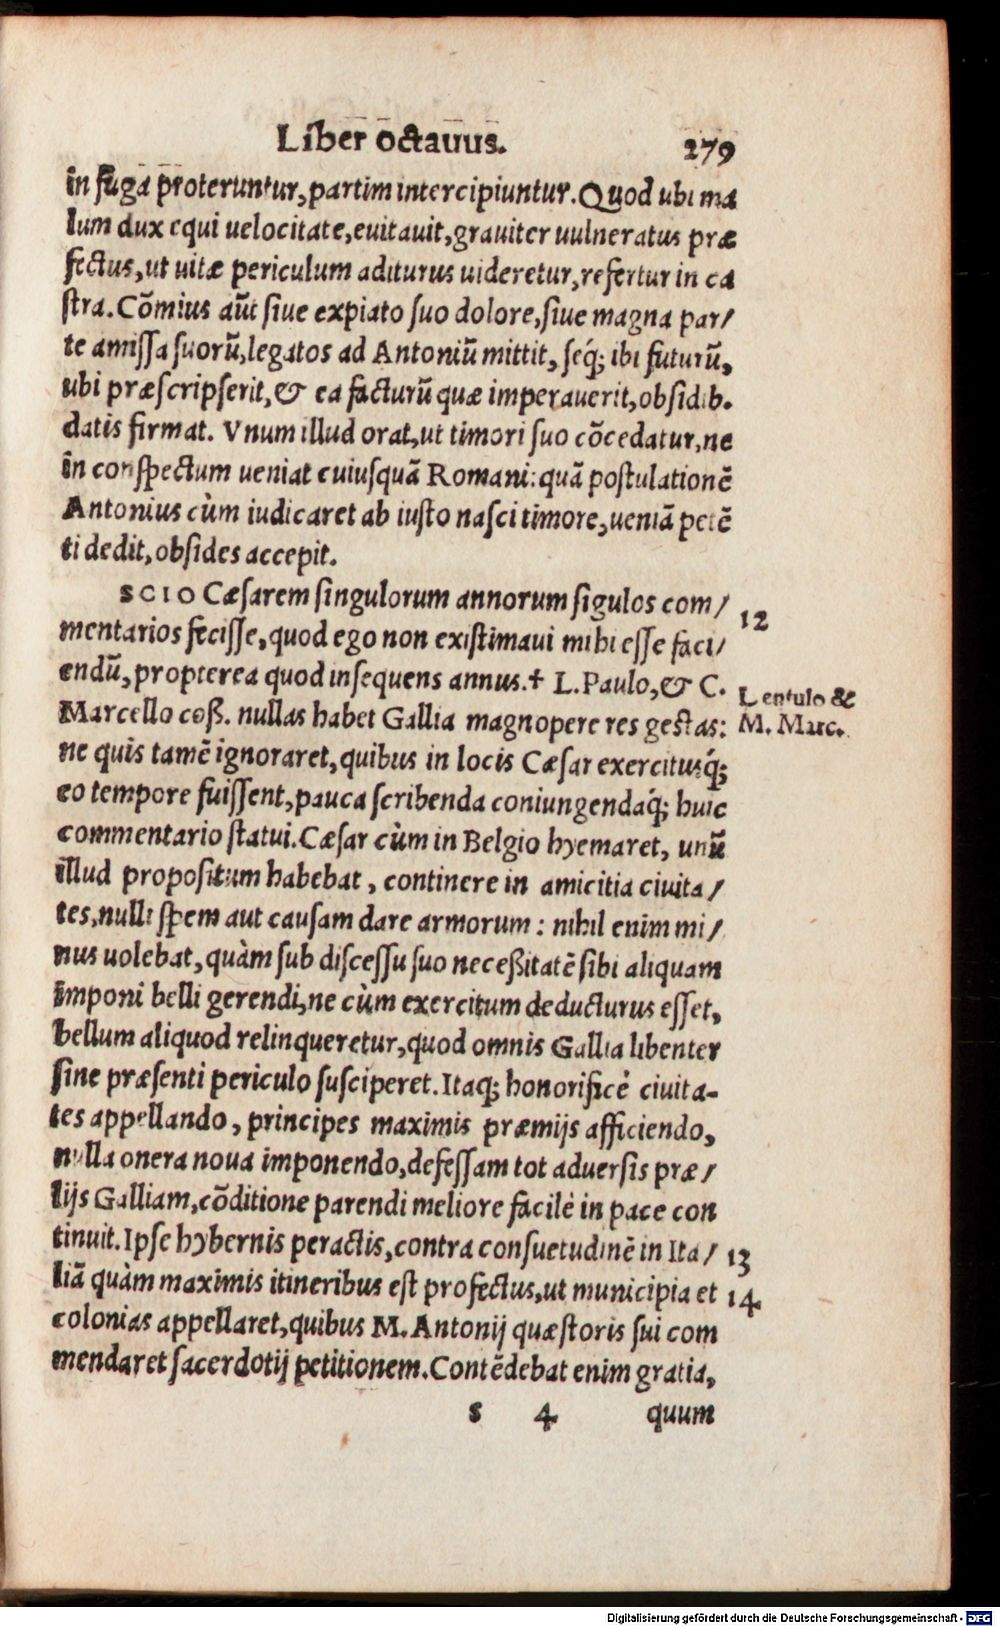 Liber octavus. 279
in fuga proteruntur, partim intercipiuntur. Quod ubi ma
lum dux equi uelocitate, euitauit, grauiter uulneratus præ
fectus, ut uitæ periculum aditurus uideretur, refertur in ca
ſtra. Cõmius aũt ſiue expiato ſuo dolore, ſiue magna par/
te amiſſa ſuorũ, legatos ad Antoniũ mittit, ſeq́; ibi futurũ,
ubi præſcripſerit, & ea facturũ quæ imperauerit, obſidib.
datis firmat. Vnum illud orat, ut timori ſuo cõcedatur, ne
in conſpectum ueniat cuiuſquã Romani: quã poſtulationẽ
Antonius cùm iudicaret ab iuſto naſci timore, ueniã petẽ
ti dedit, obſides accepit.
SCIO Cæſarem ſingulorum annorum ſigulos com/ 12
mentarios feciſſe, quod ego non exiſtimaui mihi eſſe faci/
endũ, propterea quod inſequens annus.† L. Paulo, & C. Lentulo &
Marcello coß. nullas habet Gallia magnopere res geſtas: M. Marc.
ne quis tamẽ ignoraret, quibus in locis Cæſar exercituſq́;
eo tempore fuiſſent, pauca ſcribenda coniungendaq́; huic
commentario ſtatui. Cæſar cùm in Belgio hyemaret, unũ
illud propoſitum habebat, continere in amicitia ciuita/
tes, nulli ſpem aut cauſam dare armorum: nihil enim mi/
nus uolebat, quàm ſub diſceſſu ſuo neceßitatẽ ſibi aliquam
imponi belli gerendi, ne cùm exercitum deducturus eſſet,
bellum aliquod relinqueretur, quod omnis Gallia libenter
ſine præſenti periculo ſuſciperet. Itaq; honorificè ciuita-
tes appellando, principes maximis præmijs afficiendo,
nulla onera noua imponendo, defeſſam tot aduerſis præ/
lijs Galliam, cõditione parendi meliore facilè in pace con
tinuit. Ipſe hybernis peractis, contra conſuetudinẽ in Ita/ 13
liã quàm maximis itineribus eſt profectus, ut municipia et 14
colonias appellaret, quibus M. Antonij quæſtoris ſui com
mendaret ſacerdotij petitionem. Contẽdebat enim gratia,
s 4 quum
Digitalisierung gefördert durch die Deutsche Forschungsgemeinschaft - DFG